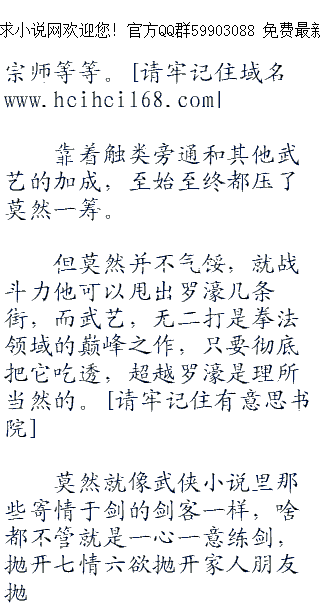 求小说网欢迎您! 官方QQ群59903088 免费最新
宗师等等。[请牢记住域名
www.hcihci168.com|
靠着触类旁通和其他武
艺的加成，至始至终都压了
莫然一筹。
但莫然并不气馁，就战
斗力他可以甩出罗濠几条
街，而武艺，无二打是拳法
领域的巅峰之作，只要彻底
把它吃透，超越罗濠是理所
当然的。[请牢记住有意思书
院]
莫然就像武侠小说里那
些寄情于剑的剑客一样，啥
都不管就是一心一意练剑，
抛开七情六欲抛开家人朋友
抛